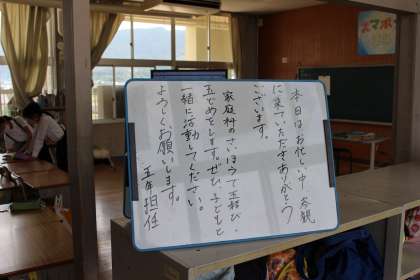 本日はお忙しい中、参観
に来ていただきありがとう
ございます。
家庭科のさいほうで玉結び、
玉どめをします。ぜひ、子どもと
一緒に活動してください。
よろしくお願いします。
五年担任